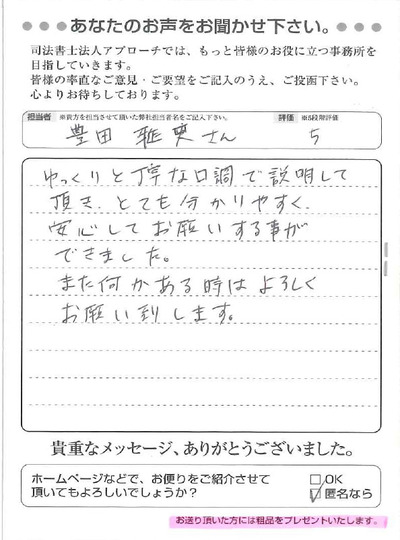 ●●●あなたのお声をお聞かせ下さい。●●●
司法書士法人アプローチでは、もっと皆様のお役に立つ事務所を
目指していきます。
皆様の率直なご意見・ご要望をご記入のうえ、ご投函下さい。
心よりお待ちしております。
担当者 ※貴方を担当させて頂いた弊社担当者名をご記入下さい。 評価 ※5段階評価
豊田 雅史さん 5
ゆっくりと丁寧な口調で説明して
頂き、とても分かりやすく、
安心してお願いする事が
できました。
また何かある時はよろしく
お願い致します。
貴重なメッセージ、ありがとうございました。
ホームページなどで、お便りをご紹介させて
頂いてもよろしいでしょうか?
□OK
☑匿名なら
お送り頂いた方には粗品をプレゼントいたします。